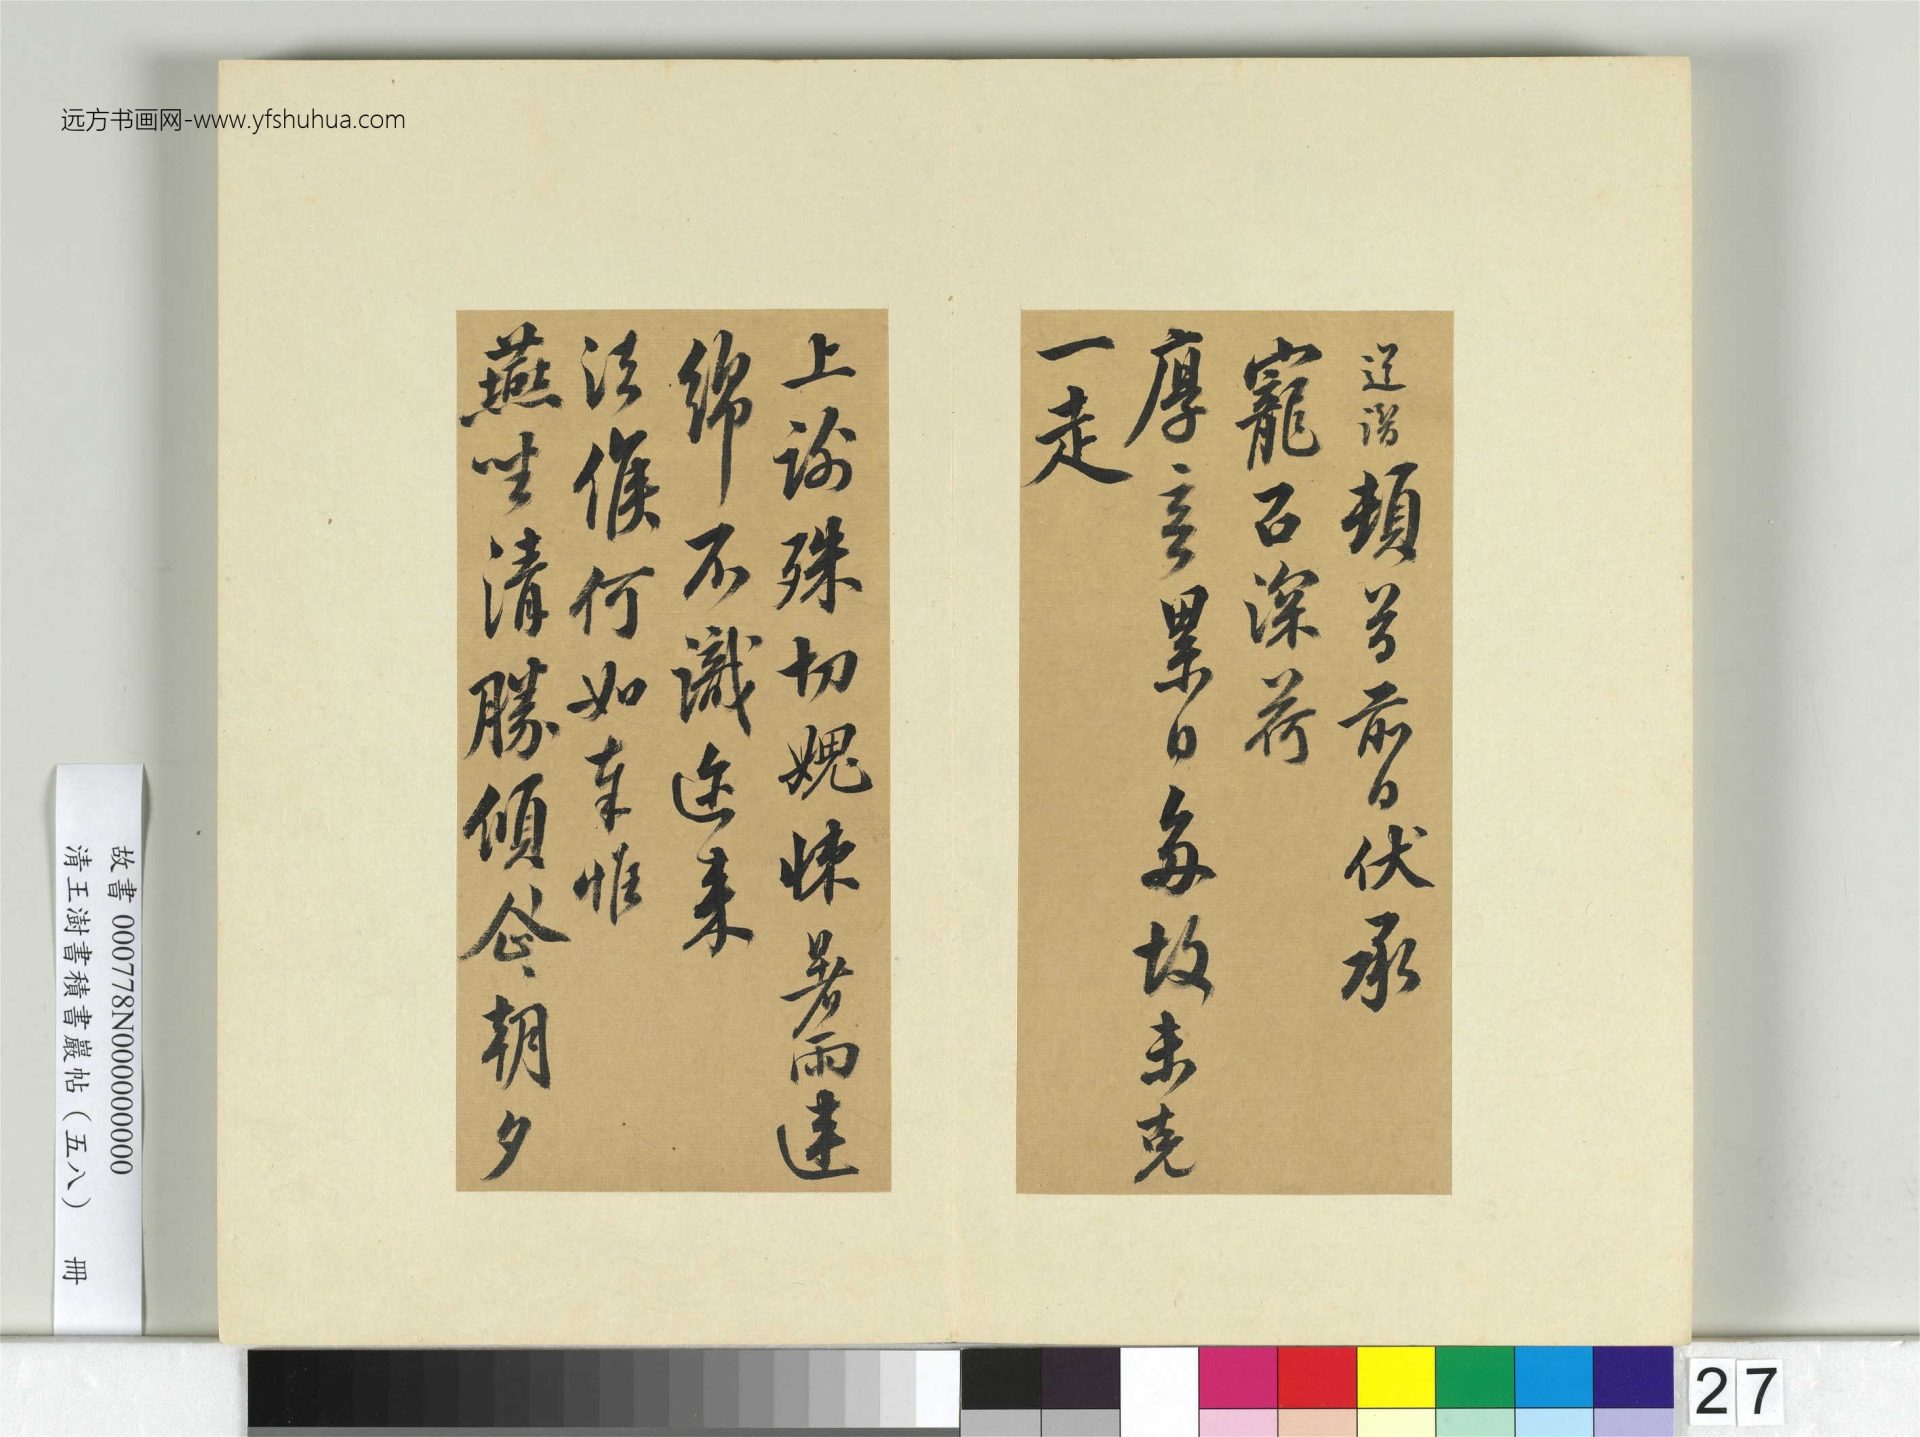 远方书画网-www.yfshuhua.com
頓首前日伏承
寵召深荷
厚意累日多故未克
一走
上謝殊切愧悚暑雨連
綿不識邇來
法候何如奉惟
燕坐清勝傾企企朝夕
故書 000778N000000000
清王澍書積書巖帖(五八) 冊
27